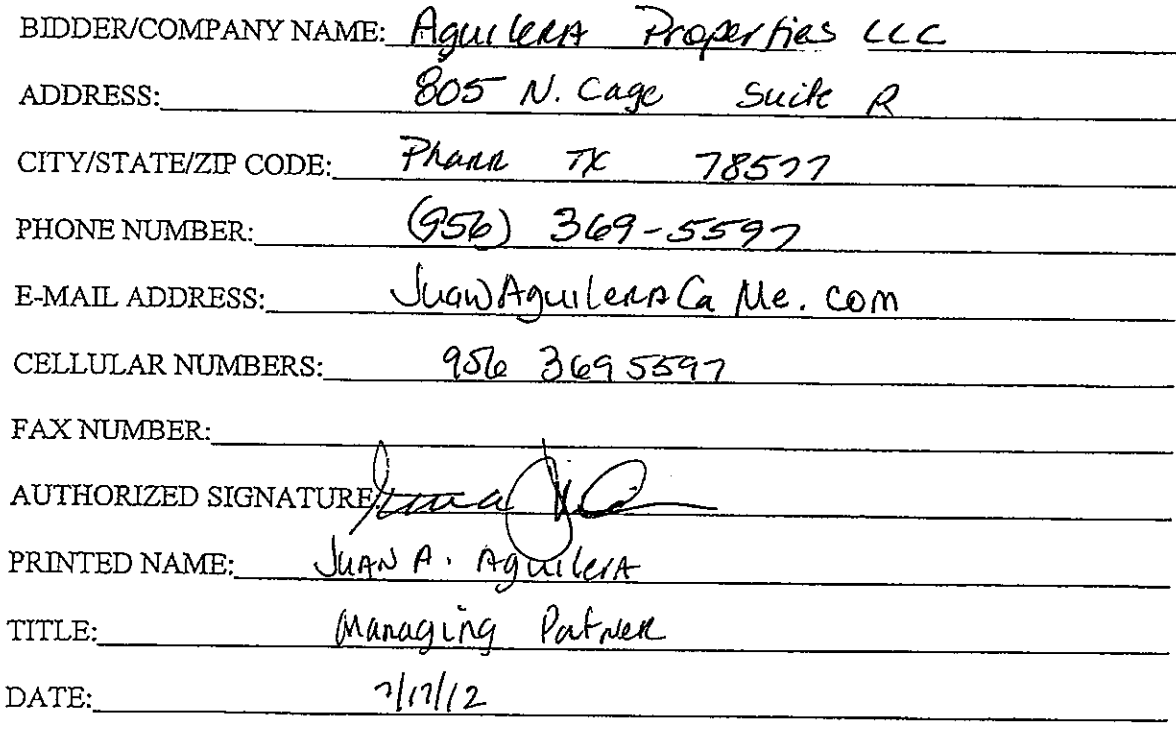 BIDDER/COMPANY NAME: Aguilera Properties LLC
ADDRESS: 805 N. Cage Suite R
CITY/STATE/ZIP CODE: Pharr TX 78577
PHONE NUMBER: (956) 369-5597
E-MAIL ADDRESS: JuanAguilera@Me.com
CELLULAR NUMBERS: 956 369 5597
FAX NUMBER:
AUTHORIZED SIGNATURE:
PRINTED NAME: Juan A. Aguilera
TITLE: Managing Patner
DATE: 7/17/12